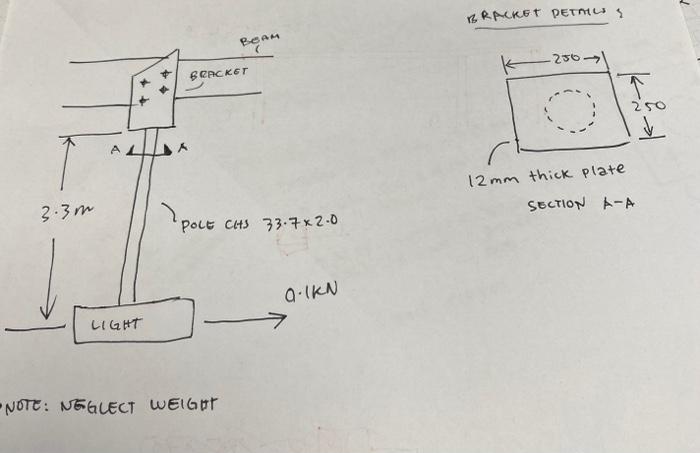 BRACKET DETAILS
BEAM
BRACKET
250
250
A A
12mm thick plate
3.3m
SECTION A-A
POLE CHS 33.7 x 2.0
0.1KN
LIGHT
NOTE: NEGLECT WEIGHT